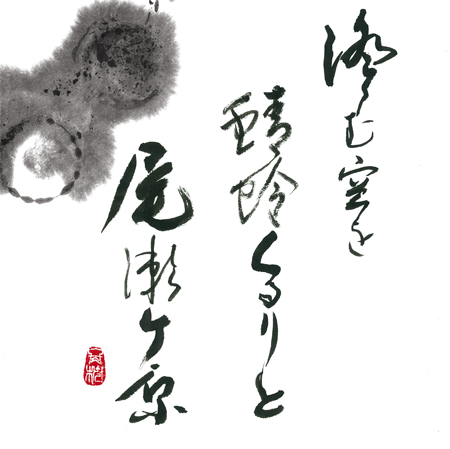 澄む空を
蜻蛉くるりと
尾瀬ケ原